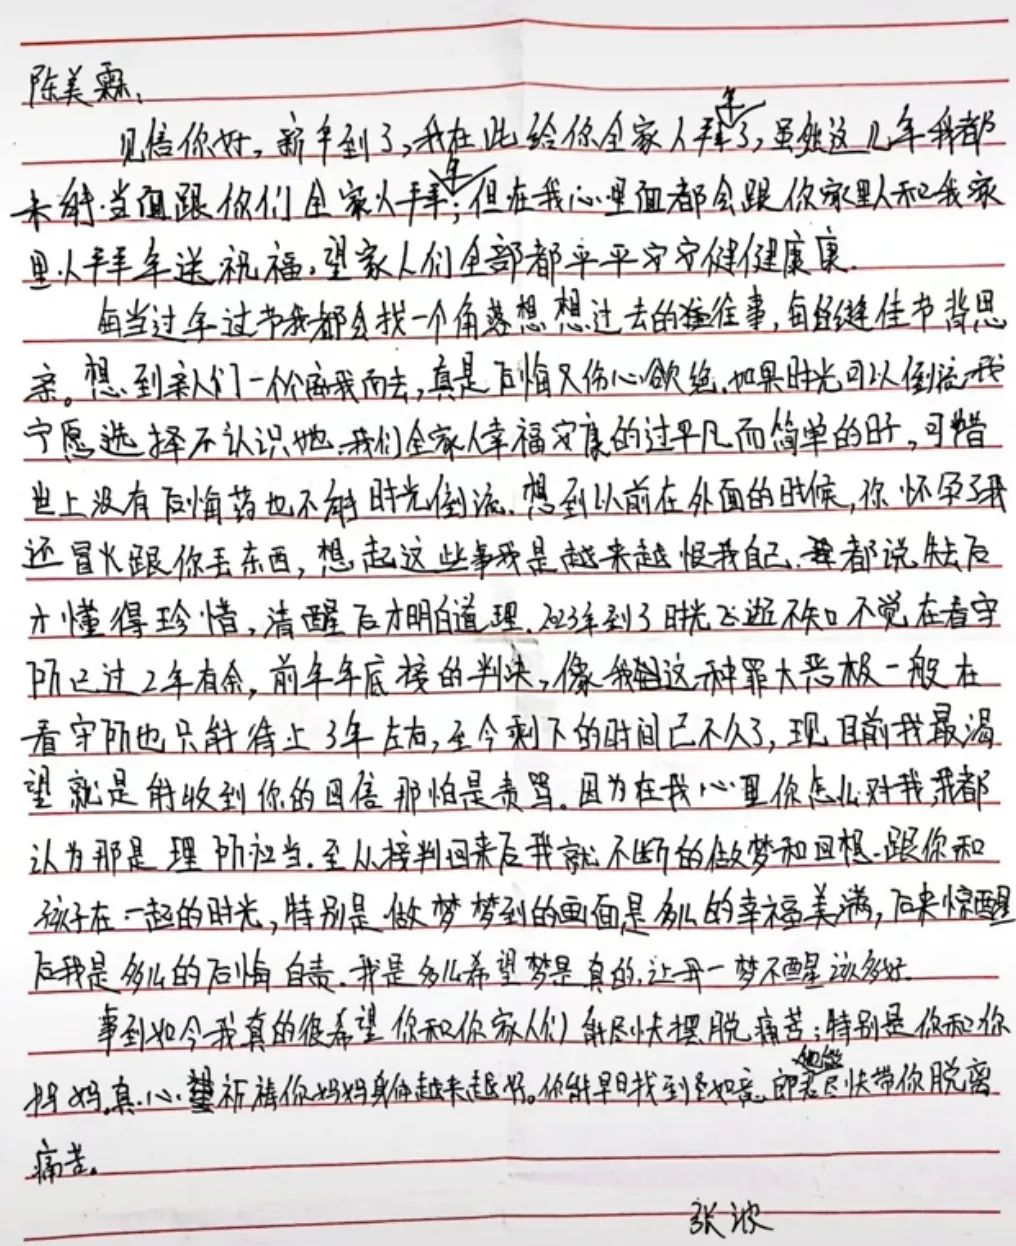 陈美霖:
见信你好,新年到了,我在此给你全家人拜年了,虽然这几年我都
未能当面跟你们全家人拜年,但在我心里面都会跟你家里人和我家
里人拜年送祝福。望家人们全部都平平安安健健康康.
每当过年过节我都会找一个角落想想过去的往事,每逢佳节背思
亲。想到亲人们一个个离我而去,真是后悔又伤心欲绝.如果时光可以倒流我
宁愿选择不认识她.我们全家人幸福安康的过平凡而简单的日子,可惜
世上没有后悔药也不能时光倒流.想到以前在外面的时候,你怀孕了我
还冒火跟你丢东西,想起这些事我是越来越恨我自己.都说失去后
才懂得珍惜,清醒后才明白道理.2023年到了时光飞逝不知不觉在看守
所已过2年有余,前年年底接的判决,像我这种罪大恶极一般在
看守所也只能待上3年左右,至今剩下的时间已不久了,现目前我最渴
望就是能收到你的回信那怕是责骂。因为在我心里你怎么对我,我都
认为那是理所衽当.至从接判回来后我就不断的做梦和回想.跟你和
孩子在一起的时光,特别是做梦梦到的画面是多么的幸福美满,后来惊醒
后我是多么的后悔自责.我是多么希望梦是真的,让我一梦不醒该多好.
事到如今我真的很希望你和你家人们能尽快摆脱痛苦;特别是你和你
妈妈.真心祈祷你妈妈身体越来越好。你能早日找到至如意郎君他能尽快带你脱离
痛苦。
张波